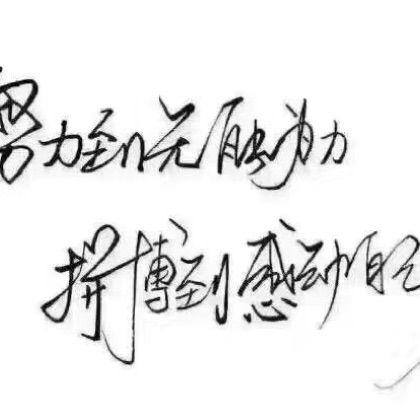 努力到无能为力
拼搏到感动自己